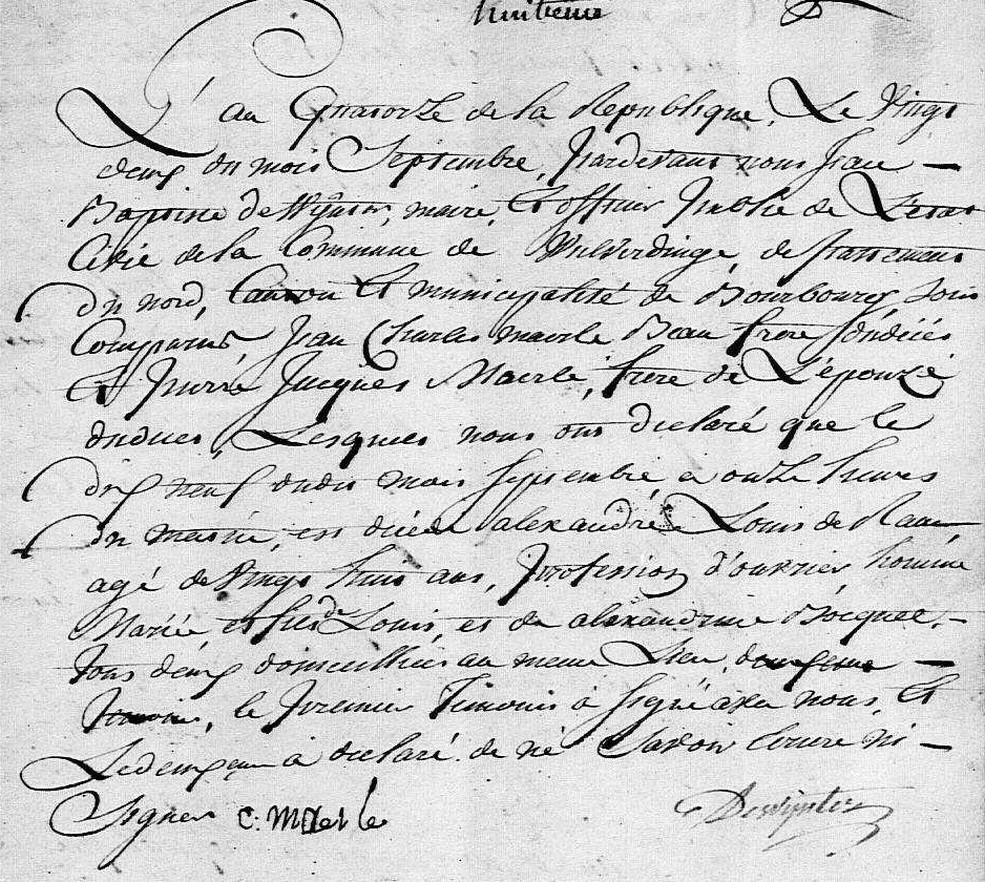 huitieme
L'an Quatorze de la Republique, Le Vingt
deux du mois Septembre, pardevant nous Jean —
Baptiste deWynter, maire, Et officier Public de L'Etat
Civie de la Commune de Wulverdinge, departement
du nord, Canton Et municipalité de Bourbourg sont
Comparus, Jean Charles maerle Beau frere
Et Pierre Jacques Maerle, frere de L'épouze
Lesquels nous ont declaré que le
dix neuf dudit mois Septembre a onze heures
du matin, est décédé alexandre Louis de Raam
agé de Vingt huit ans, profession d'ouvrier, homme
Marié, et fils de Louis, et de alexandrine Bocquee, —
tous deux domiciliés au meme Lieu, —
le premier Temoin à signé avec nous, Et
Ledeuxem a declaré de ne Savoir Ecrire ni —
Signer C. Maerle Dewynter